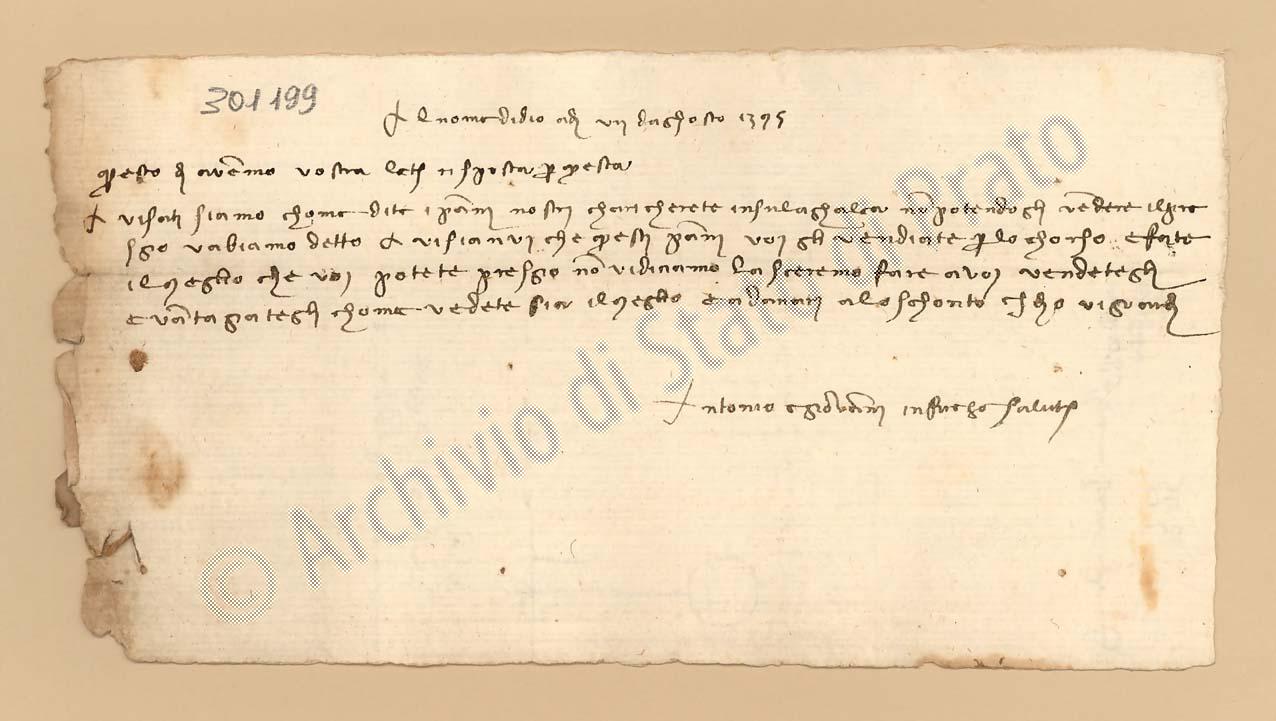 301199
Al nome di dio adi vii daghosto 1395
questo di avemo vostra lett risposta p questa
Avisati siamo chome dite i pani nostri charicherete insulaghalea no potendogli vendere il pre
sgio vabiamo detto Avisianvi che questi pani voi gli vendiate p lo chorso e fate
il meglio che voi potete presgio no vidiciamo lasceremo fare a voi vendetegli
e vantagiategli chome vedete sia il meglio e a danari a loschonto vi guardi
Antonio e giovani salut
© Archivio di Stato di Prato